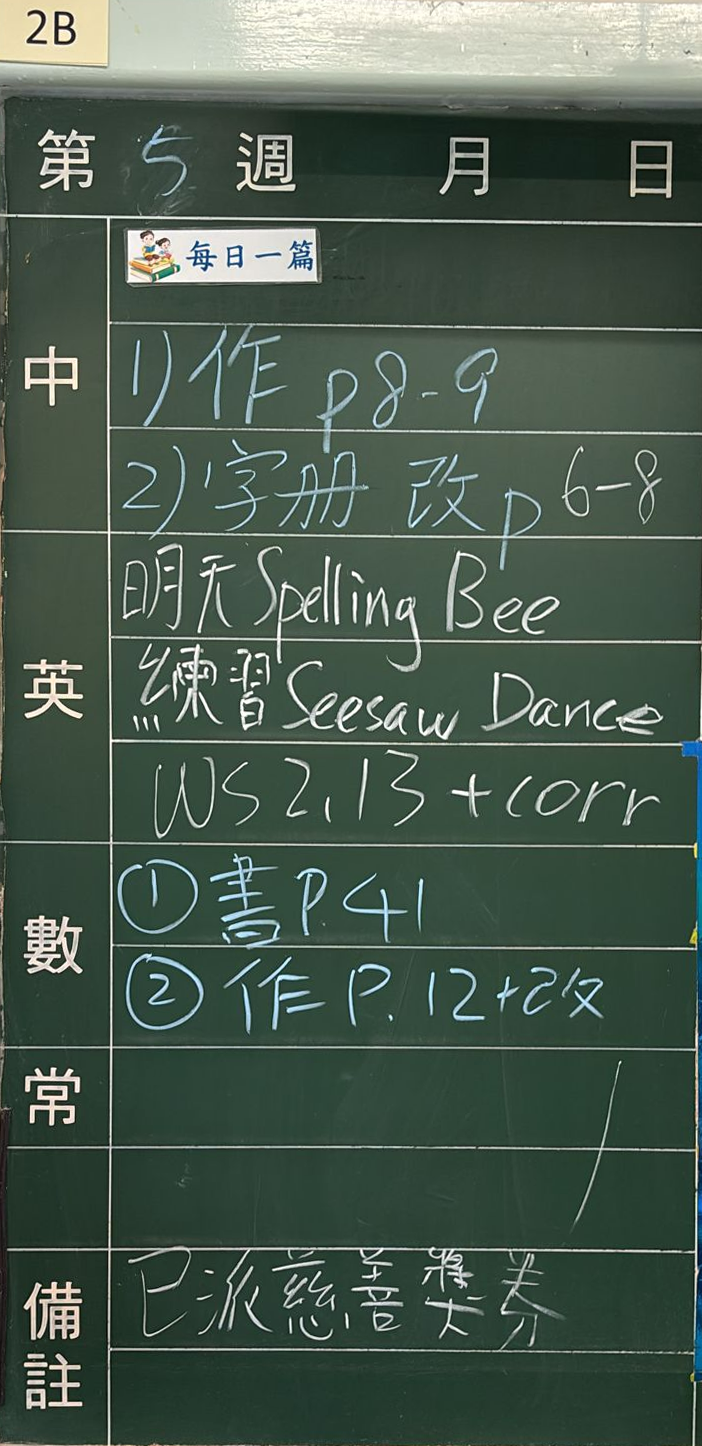 2B
第 5 週 月 日
中
每日一篇
1) 作 p 8-9
2) 字册 改 p 6-8
英
明天 Spelling Bee
練習 Seesaw Dance
WS 2.13 + corr
數
① 書 P.41
② 作 P.12+改
常
備註
已派慈善獎券